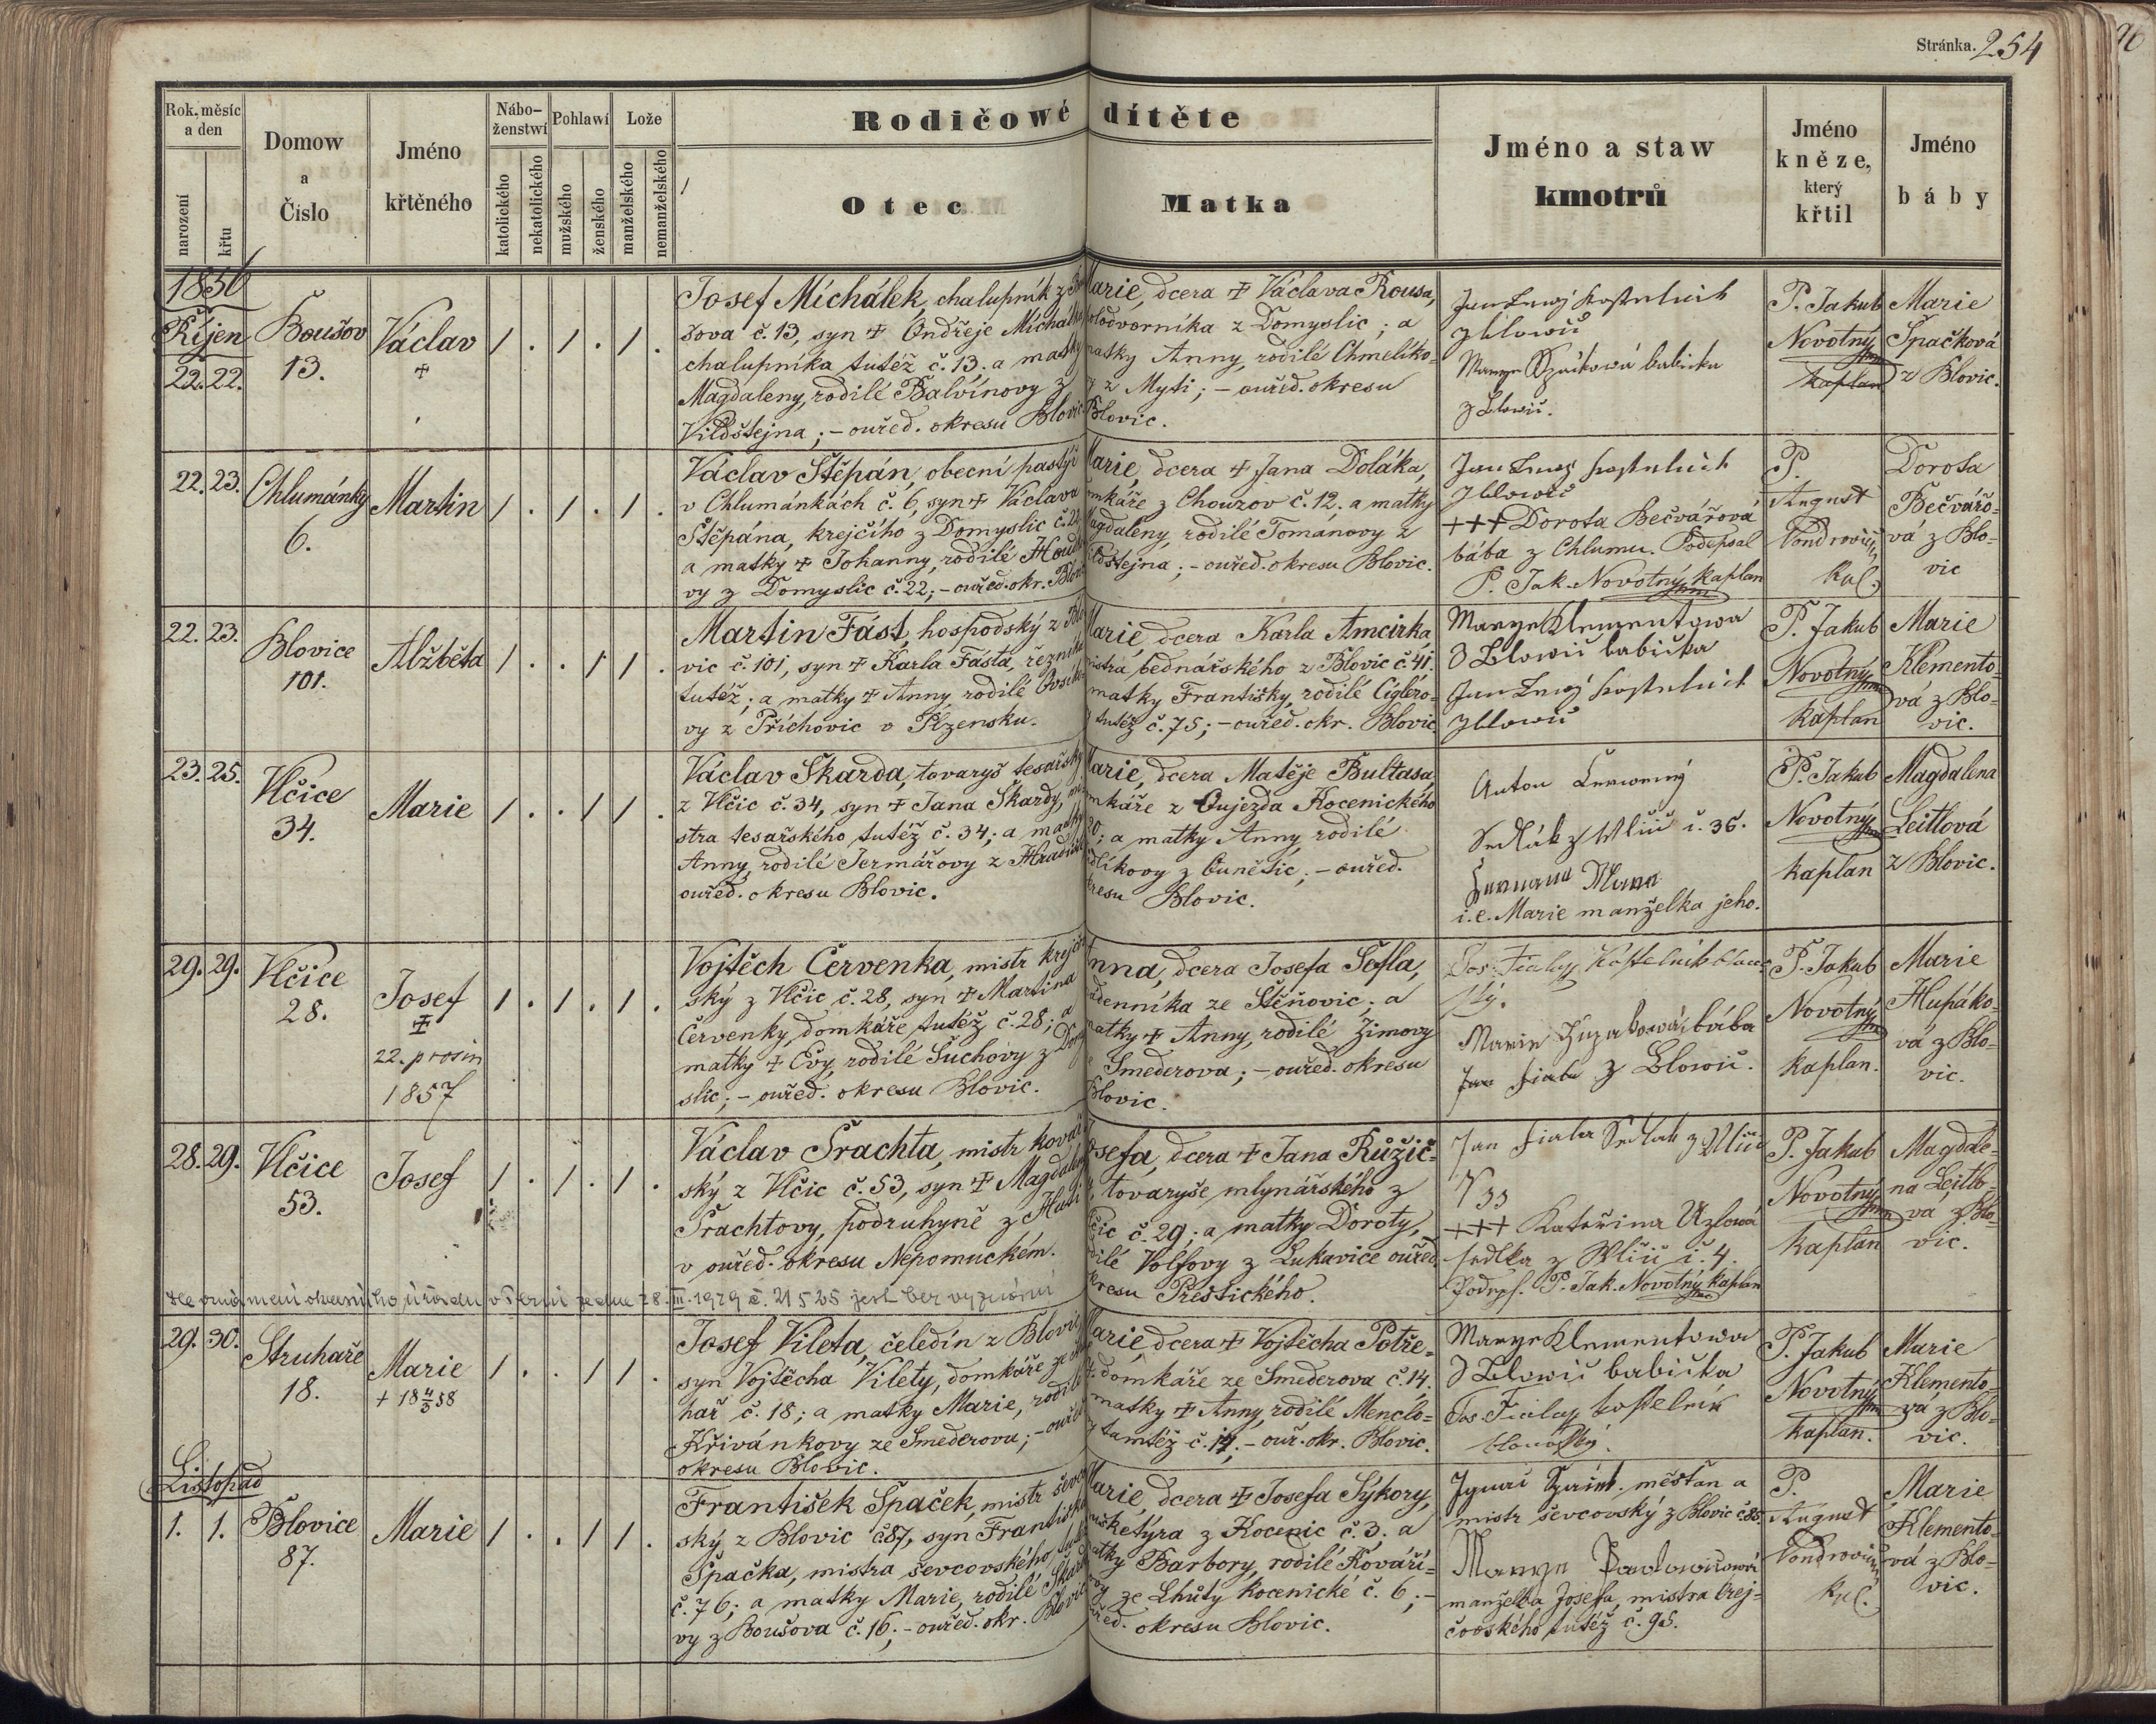 Stránka. 254
Rok, měsíc a den
narození
křtu
Domow
a
Číslo
Jméno
křtěného
Nábo-
ženstwí
katolického
nekatolického
Pohlawí
mužského
ženského
Lože
manželského
nemanželského
Rodičowé dítěte
Otec
Matka
Jméno a staw
kmotrů
Jméno
kněze,
který
křtil
Jméno
báby
1856
Říjen
22. 22.
Boušov
13.
Václav
+
1 . 1 . 1 .
Josef Michálek, chalupník z
šova č. 13, syn + Ondřeje Michálka
chalupníka tutéž č. 13. a matky
Magdaleny, rodilé Balvínovy z
Vildštejna; – ouřed. okresu Blovic
Marie, dcera + Václava Rousa,
z Domyslic; a
matky Anny, rodilé Chmelíko-
z Myti; – ouřed. okresu
Blovic.
z Blowic
babička
z Blowic.
P. Jakub
Novotný
kaplan
Marie
Špačková
z Blovic.
22. 23.
Chlumánky
6.
Martin
1 . 1 . 1 .
Václav Štěpán, obecní pastýř
v Chlumánkách č. 6, syn + Václava
Štěpána, krejčího z Domyslic č. 22
a matky + Johanny, rodilé
vy z Domyslic č. 22; – ouřed. okr. Blovic
Marie, dcera + Jana Doláka,
domkáře z Chouzov č. 12. a matky
Magdaleny, rodilé Tománovy z
; – ouřed. okresu Blovic.
z Blowic
+++ Dorota Bečvářová
bába z Chlumu. Podepsal
P. Jak. Novotný kaplan
P.
August
Vondrovic
Kal.
Dorota
Bečvářo-
vá z Blo-
vic
22. 23.
Blovice
101.
Alžběta
1 . . 1 1 .
Martin Fást, hospodský z Blo
vic č. 101, syn + Karla Fásta, řezníka
tutéž; a matky + Anny, rodilé
vy z Příchovic v Plzensku.
Marie, dcera Karla Amcirha,
mistra bednářského z Blovic č. 41.
matky Františky, rodilé Cíglero-
tutéž č. 75; – ouřed. okr. Blovic
Marye Klementowa
z Blowic babička
z Blowic
P. Jakub
Novotný
kaplan
Marie
Klemento-
vá z Blo-
vic.
23. 25.
Vlčice
34.
Marie
1 . . 1 1 .
Václav Škarda, tovaryš tesařský
z Vlčic č. 34, syn + Jana Škardy, mi
stra tesařského tutéž č. 34; a matky
Anny, rodilé Jermářovy z Hradiště
ouřed. okresu Blovic.
Marie, dcera Matěje Bultasa,
domkáře z Oujezda Kocenického
; a matky Anny rodilé
z Ouněšic; – ouřed.
okresu Blovic.
Anton Červený
Sedlák z Wlčic č. 36.
i. e. Marie manželka jeho.
P. Jakub
Novotný
kaplan
Magdalena
Leitlová
z Blovic.
29. 29.
Vlčice
28.
Josef
+
22. prosin
1857
1 . 1 . 1 .
Vojtěch Červenka, mistr krejčov
ský z Vlčic č. 28, syn + Martina
Červenky, domkáře tutéž č. 28; a
matky + Evy, rodilé Suchovy z Domy
slic; – ouřed. okresu Blovic.
Anna, dcera Josefa Šofla,
nádenníka ze Štěňovic; a
matky + Anny, rodilé Zimovy
ze Smederova; – ouřed. okresu
Blovic.
Jos. Fialay Kostelník
Marie bába
z Blowic.
P. Jakub
Novotný
kaplan.
Marie
Hupáko-
vá z Blo-
vic.
28. 29.
Vlčice
53.
Josef
1 . 1 . 1 .
Václav Šrachta, mistr kovář
ský z Vlčic č. 53, syn + Magdaleny
Šrachtovy, podruhyně z
v ouřed. okresu Nepomuckém.
Josefa, dcera + Jana Růžič-
tovaryše mlynářského z
Vlčic č. 29; a matky Doroty,
rodilé Volfovy z Lukavice ouřed.
okresu Přeštického.
Jan Fiala Sedlák z Wlčic
N 33
+++ Kateřina Uzlowá
sedlka z Wlčic č. 4.
Podeps. P. Jak. Novotný kaplan
P. Jakub
Novotný
kaplan
Magdale-
na Leitlo-
vá z Blo-
vic.
úřadu v Plzni ze dne 28. III. 1929 č. 21525 jest bez vyznání
29. 30.
Struhaře
18.
Marie
+ 18 4/3 58
1 . . 1 1 .
Josef Vileta, čeledín z Blovic,
syn Vojtěcha Vilety, domkáře ze
hař č. 18; a matky Marie, rodilé
Křivánkovy ze Smederova; – ouřed
okresu Blovic.
Marie, dcera + Vojtěcha Potře-
domkáře ze Smederova č. 14.
matky + Anny, rodilé Menclo-
tamtéž č. 14, – ouř. okr. Blovic.
Marye Klementowa
z Blowic babička
Jos. Fialay kostelník
blowický.
P. Jakub
Novotný
kaplan.
Marie
Klemento-
vá z Blo-
vic.
Listopad
1. 1.
Blovice
87.
Marie
1 . . 1 1 .
František Špaček, mistr ševcov
ský z Blovic č. 87, syn Františka
Špačka, mistra ševcovského tutéž
č. 76; a matky Marie, rodilé
vy z Boušova č. 16; – ouřed. okr. Blovic
Marie, dcera + Josefa Sýkory,
mušketýra z Kocenic č. 3. a
matky Barbory, rodilé Kováří-
ze Lhůty Kocenické č. 6; –
ouřed. okresu Blovic.
měšťan a
mistr ševcovský z Blovic č. 85.
manželka Josefa, mistra krej-
čovského tutéž č. 95.
P.
August
Vondrovic
Kal.
Marie
Klemento-
vá z Blo-
vic.